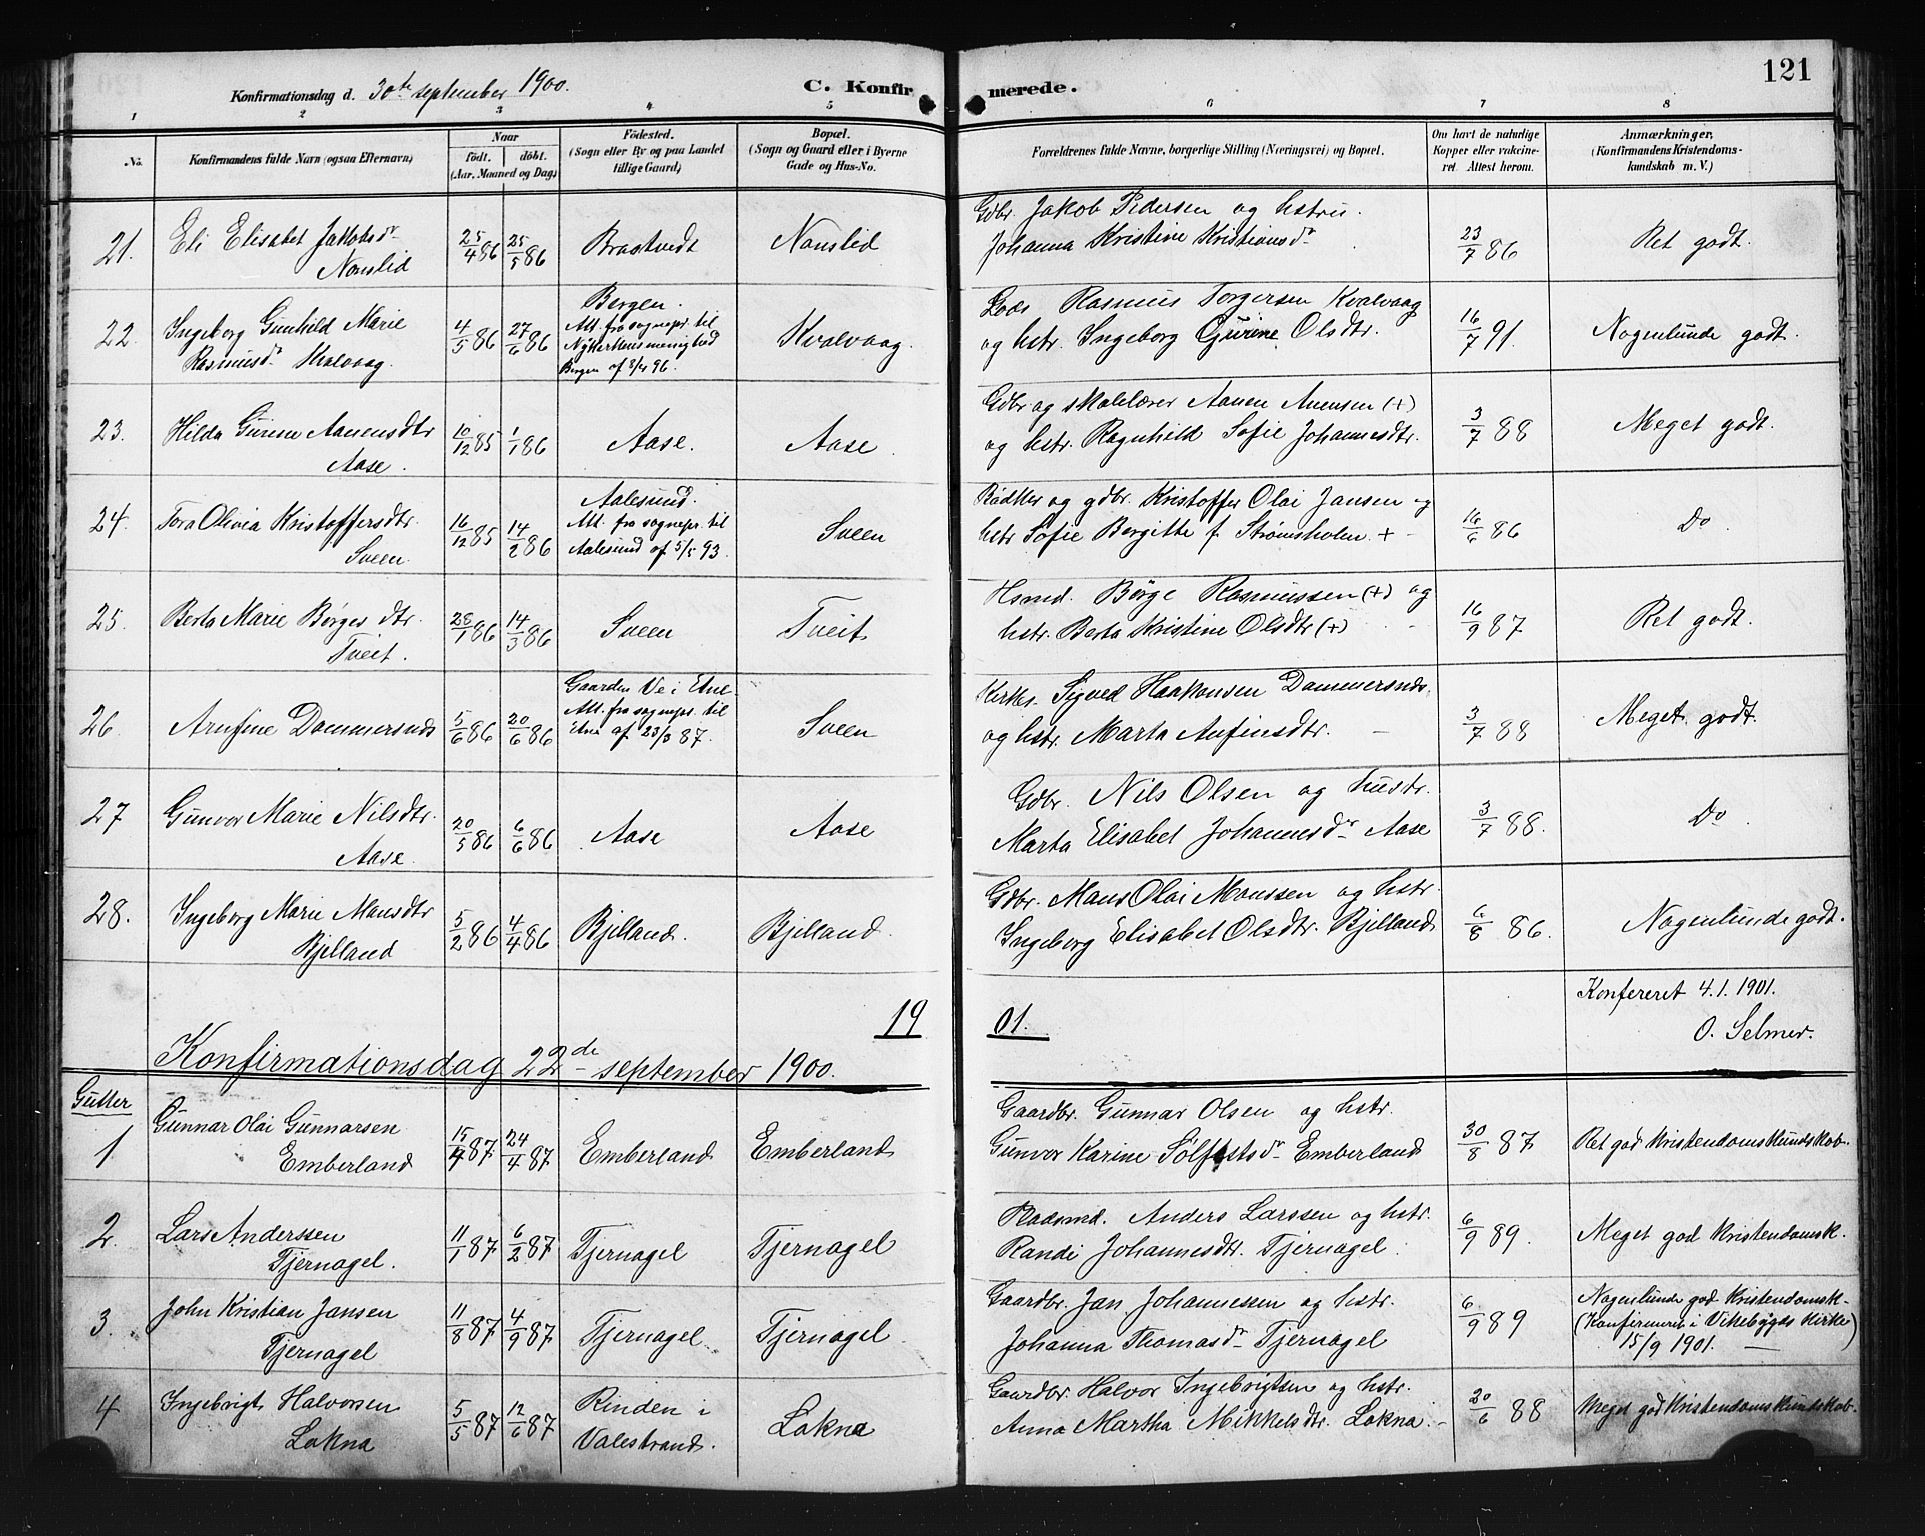 Konfirmationsdag d. 30te september 1900. C. Konfirmerede. 121
1 2 3 4 5 6 7 8
No. Konfirmandens fulde Navn (ogsaa Efternavn) Naar födt. döbt. (Aar, Maaned og Dag) Födested. (Sogn eller By og paa Landet tillige Gaard) Bopæl. (Sogn og Gaard eller i Byerne Gade og Hus-No. Forældrenes fulde Navne, borgerlige Stilling (Næringsvei) og Bopæl. Om havt de naturlige Kopper eller vakcineret. Attest herom. Anmærkninger, (Konfirmandens Kristendomskundskab m. V.)
21. Eli Elisabet Jakobsdr 25/4 86 25/5 86 Brastvedt Nonslid Gdbr. Jakob Pedersen og hstru. 23/7 86 Ret godt.
Nonslid Johanna Kristine Kristiansdr
22. Ingeborg Gunhild Marie 4/5 86 27/6 86 Bergen. Kvalvaag. Lods Rasmus Torgersen Kvalvaag 16/7 91. Nogenlunde godt.
Rasmusdr Kvalvaag. Att. fra sognepr. til og hstr. Ingeborg Gurine Olsdtr.
Nykerkensmenighed
Bergen af 3/4 96.
23. Hilda Gurine Aanensdtr 10/12 85 1/1 86 Aase. Aase. Gdbr og skolelærer Aanen Anensen (+) 3/7 88 Meget godt.
Aase. og hstr. Ragnhild Sofie Johannesdtr.
24. Tora Olivia Kristoffersdtr. 16/12 85 14/2 86 Aalesund. Sveen Bødker og gdbr. Kristoffer Olai Jansen og 16/6 86 Do.
Sveen. Att. fra sognepr. til hstr Sofie Bergitte f. Strømsholm +
Aalesund af 5/5 93.
25. Berta Marie Børgesdtr. 28/1 86 14/3 86 Sveen Tveit Hsmd. Børge Rasmussen (+) og 16/9 87 Ret godt.
Tveit. hstr. Berta Kristine Olsdtr (+)
26. Arnfine Dommersnes 5/6 86 20/6 86 Gaarden Ve i Etne Sveen Kirkes. Sigved Haakonsen Dommersnes. 3/7 88 Meget godt.
Att. fra sognepr. til og hstr. Marta Anfinsdtr.
Etne af 23/3 87.
27 Gunvor Marie Nilsdtr. 20/5 86 6/6 86 Aase Aase Gdbr. Nils Olsen og hustr. 3/7 88. Do.
Aase. Marta Elisabet Johannesdr Aase
28. Ingeborg Marie Mansdtr 5/2 86 4/4 86 Bjelland. Bjelland. Gdbr. Mans Olai Monssen og hstr. 6/8 86. Nogenlunde godt.
Bjelland Ingeborg Elisabet Olsdtr. Bjelland
Konfereret 4.1.1901.
1901. O. Selmer.
Konfirmationsdag 22de september 1900.
Gutter
1 Gunnar Olai Gunnarsen 15/4 87 24/4 87 Emberland Emberland Gaardbr. Gunnar Olsen og hstr. 30/8 87 Ret god kristendomskundskab.
Emberland Gunvor Karine Sølfestsdr Emberland
2. Lars Anderssen 11/1 87 6/2 87 Tjernagel Tjernagel Baadsmd. Anders Larssen og hstr. 6/9 89. Meget god kristendomsk.
Tjernagel. Randi Johannesdtr. Tjernagel
3. John Kristian Jansen 11/8 87 4/9 87 Tjernagel. Tjernagel Gaardbr. Jan Johannessen og hstr. 6/9 89 Nogenlunde god kristendomsk.
Tjernagel Johanna Thomasdr Tjernagel (Konfirmeret i Vikebygds kirke)
15/9 1901.
4 Ingebrigt Halvorsen 5/5 87 12/6 87 Rinden i Lokna Gaardbr. Halvor Ingebrigtsen og hstr. 20/6 88 Meget god kristendomskundskab.
Lokna Valestrand. Anna Martha Mikkelsdtr. Lokna.